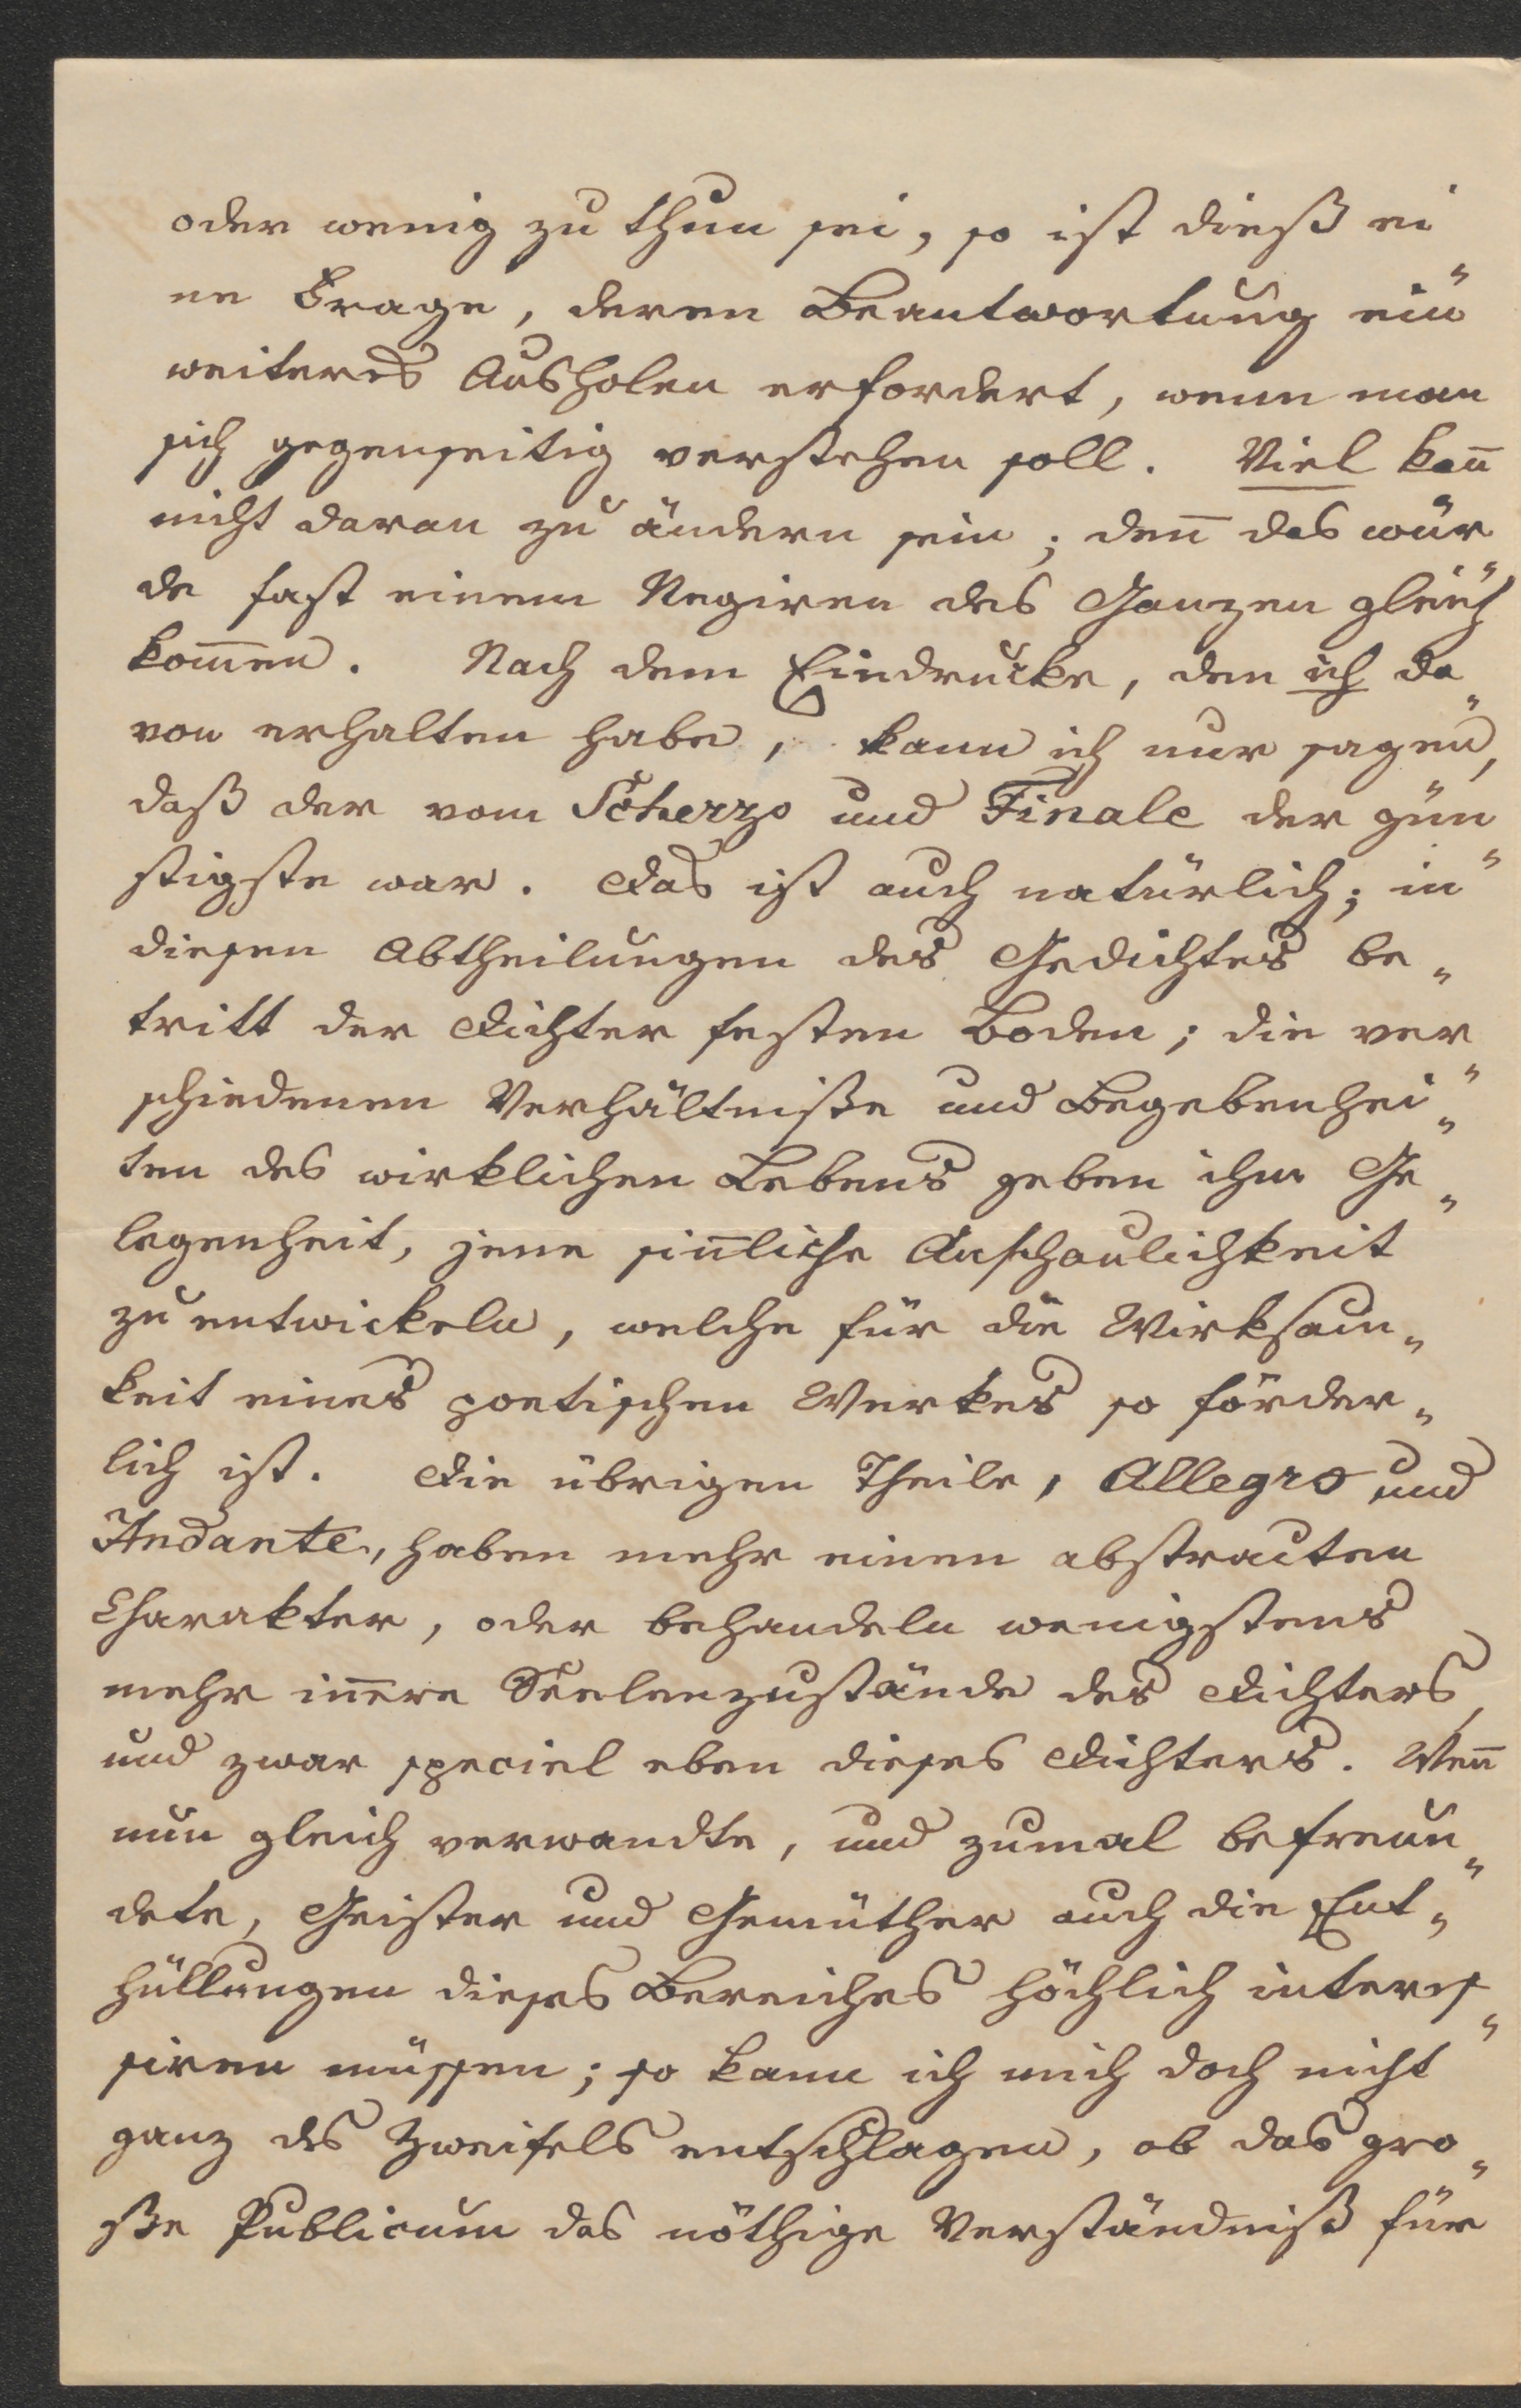 oder wenig zu thun sei, so ist dieß ei„
ne Frage, deren Beantwortung ein
weiteres Ausholen erfordert, wenn man
sich gegenseitig verstehen soll. Viel kann̄
nicht daran zu ändern sein; den̄ das wür„
de fast einem Negiren des Ganzen gleich
kom̄en. Nach dem Eindrucke, den ich da„
von erhalten habe, kann ich nur sagen,
daß der vom Scherzo und Finale der gün„
stigste war. Das ist auch natürlich; in
diesen Abtheilungen des Gedichtes be„
tritt der Dichter festen Boden; die ver„
schiedenen Verhältniße und Begebenhei„
ten des wirklichen Lebens geben ihm Ge„
legenheit, jene sin̄liche Anschaulichkeit
zu entwickeln, welche für die Wirksam„
keit eines poetischen Werkes so förder„
lich ist. Die übrigen Theile, Allegro und
Andante, haben mehr einen abstracten
Charakter, oder behandeln wenigstens
mehr in̄ere Seelenzustände des Dichters,
und zwar speciel eben dieses Dichters. Wen̄
nun gleich verwandte, und zumal befreun„
dete, Geister und Gemüther auch die Ent„
hüllungen dieses Bereiches höchlich interes„
siren müssen; so kann ich mich doch nicht
ganz des Zweifels entschlagen, ob das gro„
ße Publicum das nöthige Verständniß für